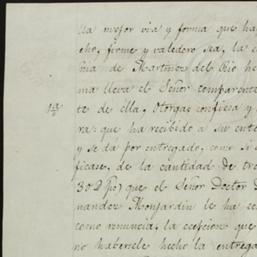 la mejor via y forma que ha
cho, firme y valedero sea, la c
ma de Martinez del Rio he
ma lleva el Señor comparent
te de ella, Otorga: confiesa y
ra: que ha recibido a su ente
y se dá por entregado, como si
ficase, de la cantidad de tre
302 que el Señor Doctor
nandez Monjardin le ha
como renuncia, la excepcion que
no haberse hecho la entrega